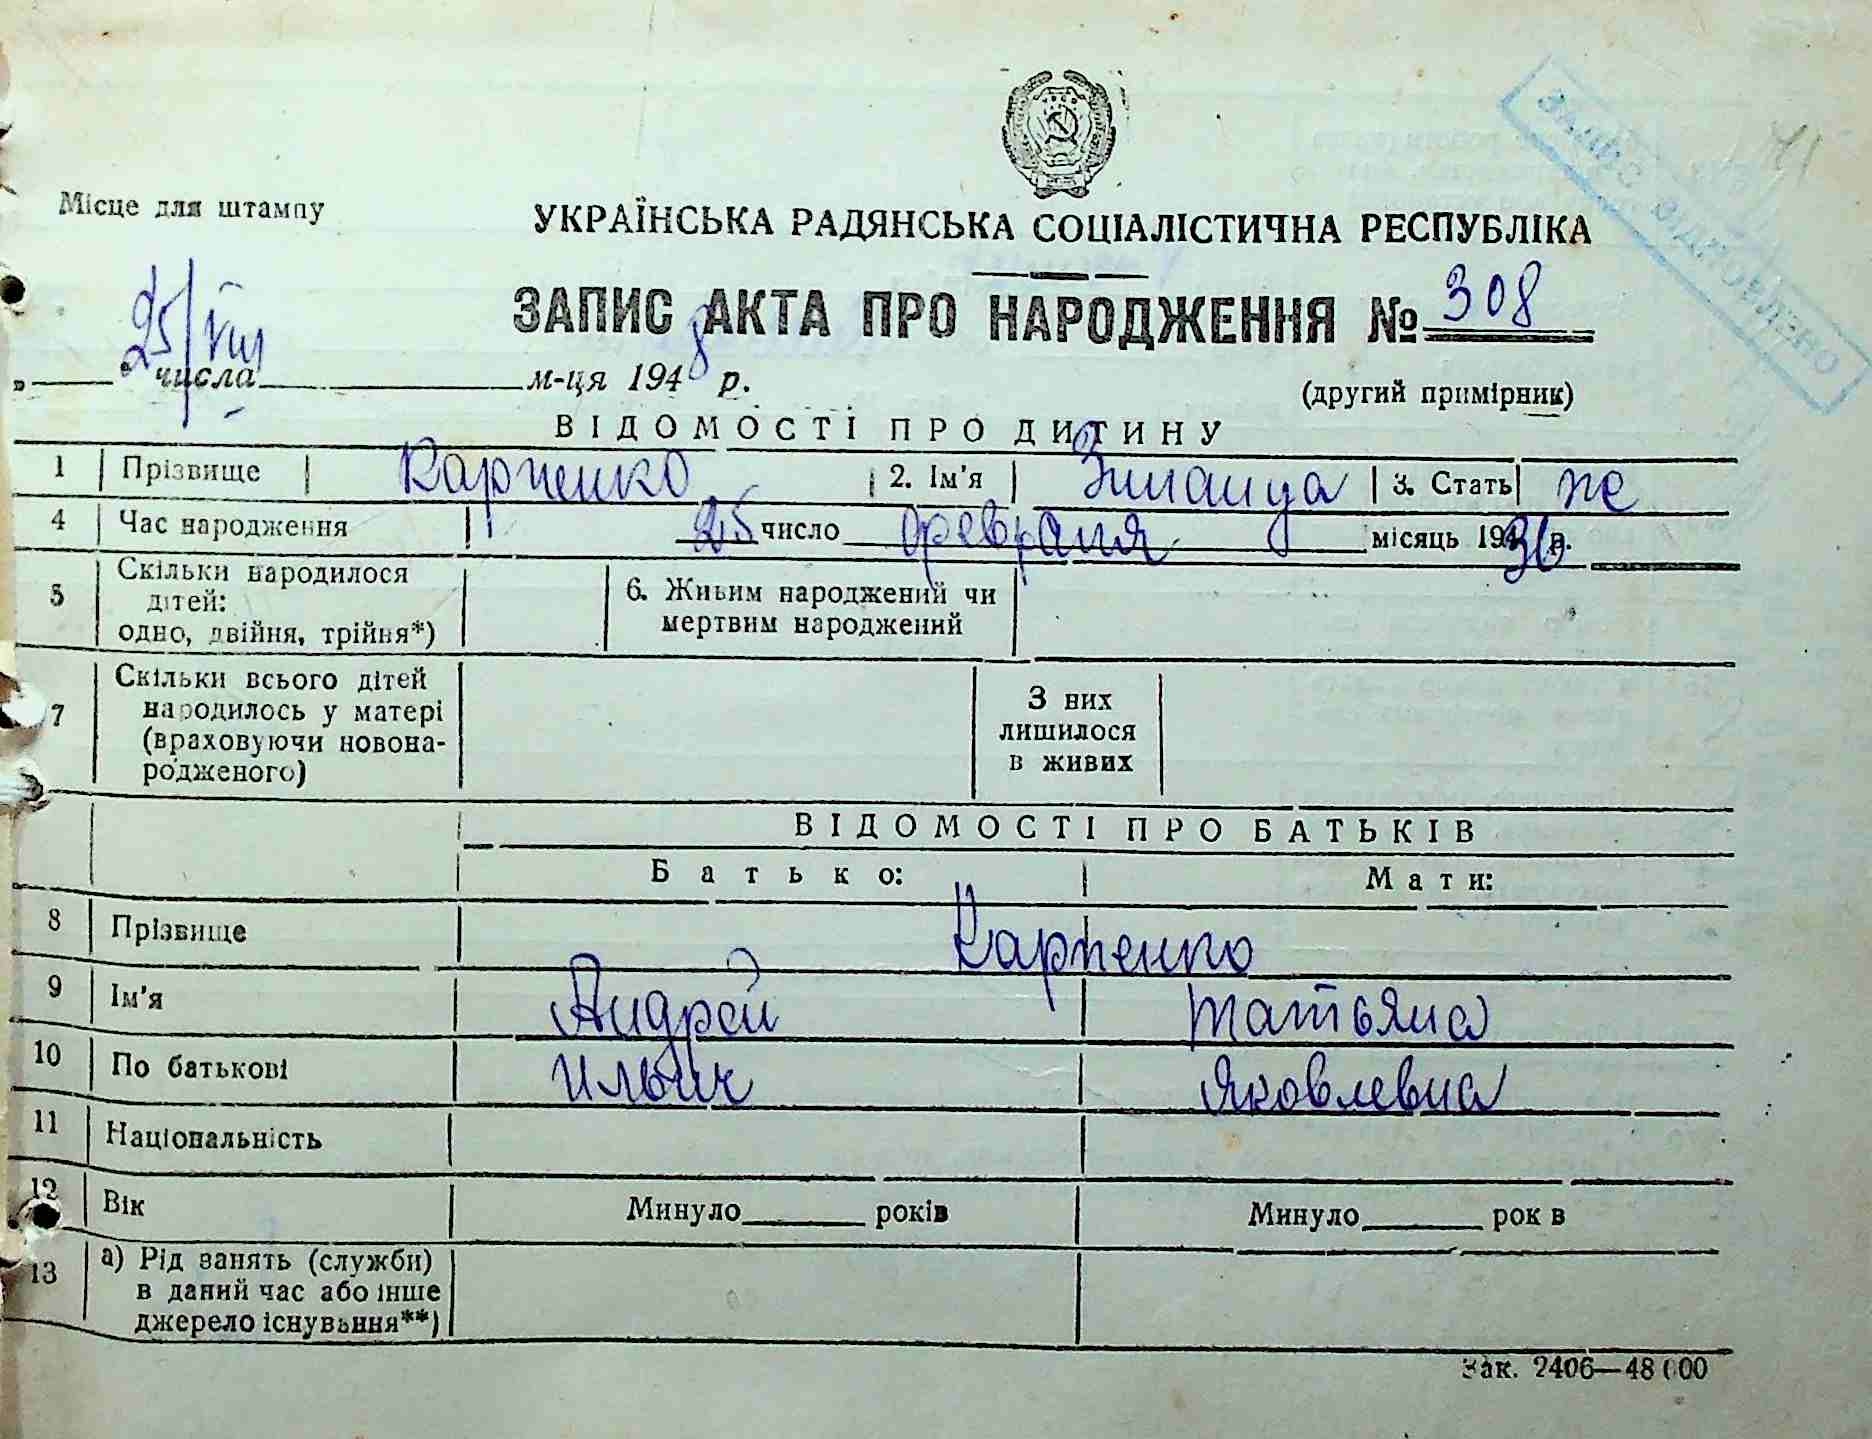 ЗАПИС ВІДНОВЛЕНО
41
Місце для штампу
УКРАЇНСЬКА РАДЯНСЬКА СОЦІАЛІСТИЧНА РЕСПУБЛІКА
ЗАПИС АКТА ПРО НАРОДЖЕННЯ № 308
25/VIII
„ числа м-ця 1948 р.
(другий примірник)
ВІДОМОСТІ ПРО ДИТИНУ
1 Прізвище Карпенко 2. Ім'я Зинаида 3. Стать ж
4 Час народження 25 число февраля місяць 1936 р.
5 Скільки народилося дітей: одно, двійня, трійня*) 6. Живим народжений чи мертвим народжений
7 Скільки всього дітей народилось у матері (враховуючи новона-родженого) З них лишилося в живих
ВІДОМОСТІ ПРО БАТЬКІВ
Батько: Мати:
8 Прізвище Карпенко
9 Ім'я Андрей Татьяна
10 По батькові Ильич Яковлевна
11 Національність
12 Вік Минуло років Минуло рок в
13 а) Рід занять (служби) в даний час або інше джерело існування**)
Зак. 2406—48000